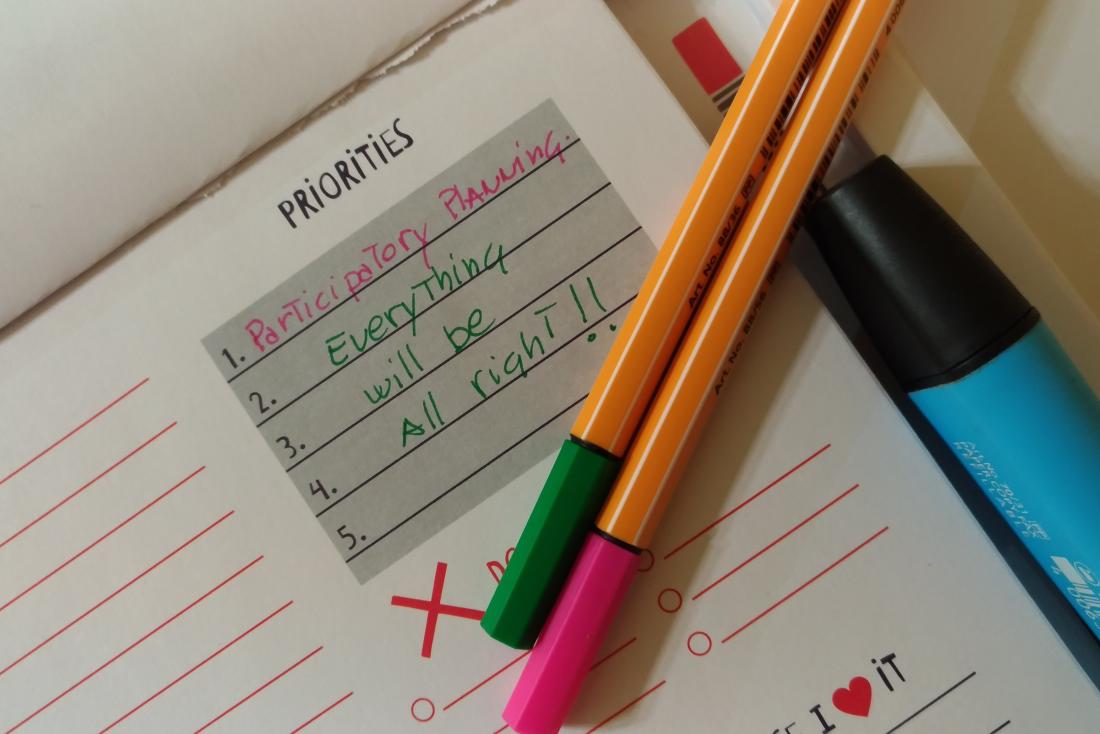 PRIORITIES
1. Participatory Planning.
2. Everything
3. will be
4. All right!!
5.
I ❤ IT
Art No. 88/36
Art No. 88/56